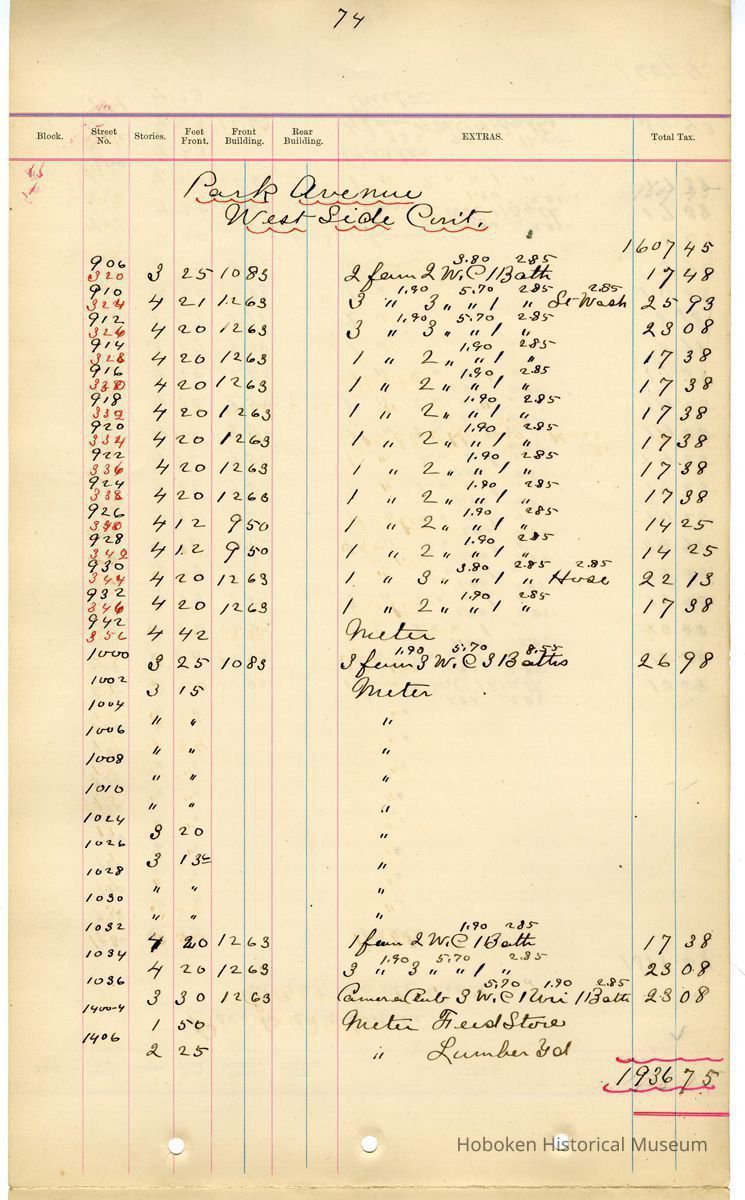 74
Block. Street No. Stories. Feet Front. Front Building. Rear Building. EXTRAS. Total Tax.
Park Avenue
West Side Cont.
1607 45
3.80 2.85
906 320 3 25 1083 2 fam 2 W.C 1 Bath 17 48
1.90 5.70 2.85 2.85
910 324 4 21 1263 3 " 3 " " 1 " St Wash 25 93
1.90 5.70 2.85
912 326 4 20 1263 3 " 3 " " 1 " 23 08
1.90 2.85
914 328 4 20 1263 1 " 2 " " 1 " 17 38
1.90 2.85
916 330 4 20 1263 1 " 2 " " 1 " 17 38
1.90 2.85
918 332 4 20 1263 1 " 2 " " 1 " 17 38
1.90 2.85
920 334 4 20 1263 1 " 2 " " 1 " 17 38
1.90 2.85
922 336 4 20 1263 1 " 2 " " 1 " 17 38
1.90 2.85
924 338 4 20 1263 1 " 2 " " 1 " 17 38
1.90 2.85
926 340 4 12 9 50 1 " 2 " " 1 " 14 25
1.90 2.85
928 342 4 12 9 50 1 " 2 " " 1 " 14 25
3.80 2.85 2.85
930 344 4 20 1263 1 " 3 " " 1 " Hose 22 13
1.90 2.85
932 346 4 20 1263 1 " 2 " " 1 " 17 38
942 356 4 42 Meter
1.90 5.70 8.55
1000 3 25 1083 3 fam 3 W.C 3 Baths 26 98
1002 3 15 Meter
1004 " " "
1006 " " "
1008 " " "
1010 " " "
1024 3 20 "
1026 3 13 "
1028 " " "
1030 " " "
1.90 2.85
1032 4 20 1263 1 fam 2 W.C 1 Bath 17 38
1.90 5.70 2.85
1034 4 20 1263 3 " 3 " " 1 " 23 08
5.70 1.90 2.85
1036 3 30 1263 Camera Club 3 W.C 1 Uri 1 Bath 23 08
1400-4 1 50 Meter Feed Store
1406 2 25 " Lumber Yd
1936 75
Hoboken Historical Museum